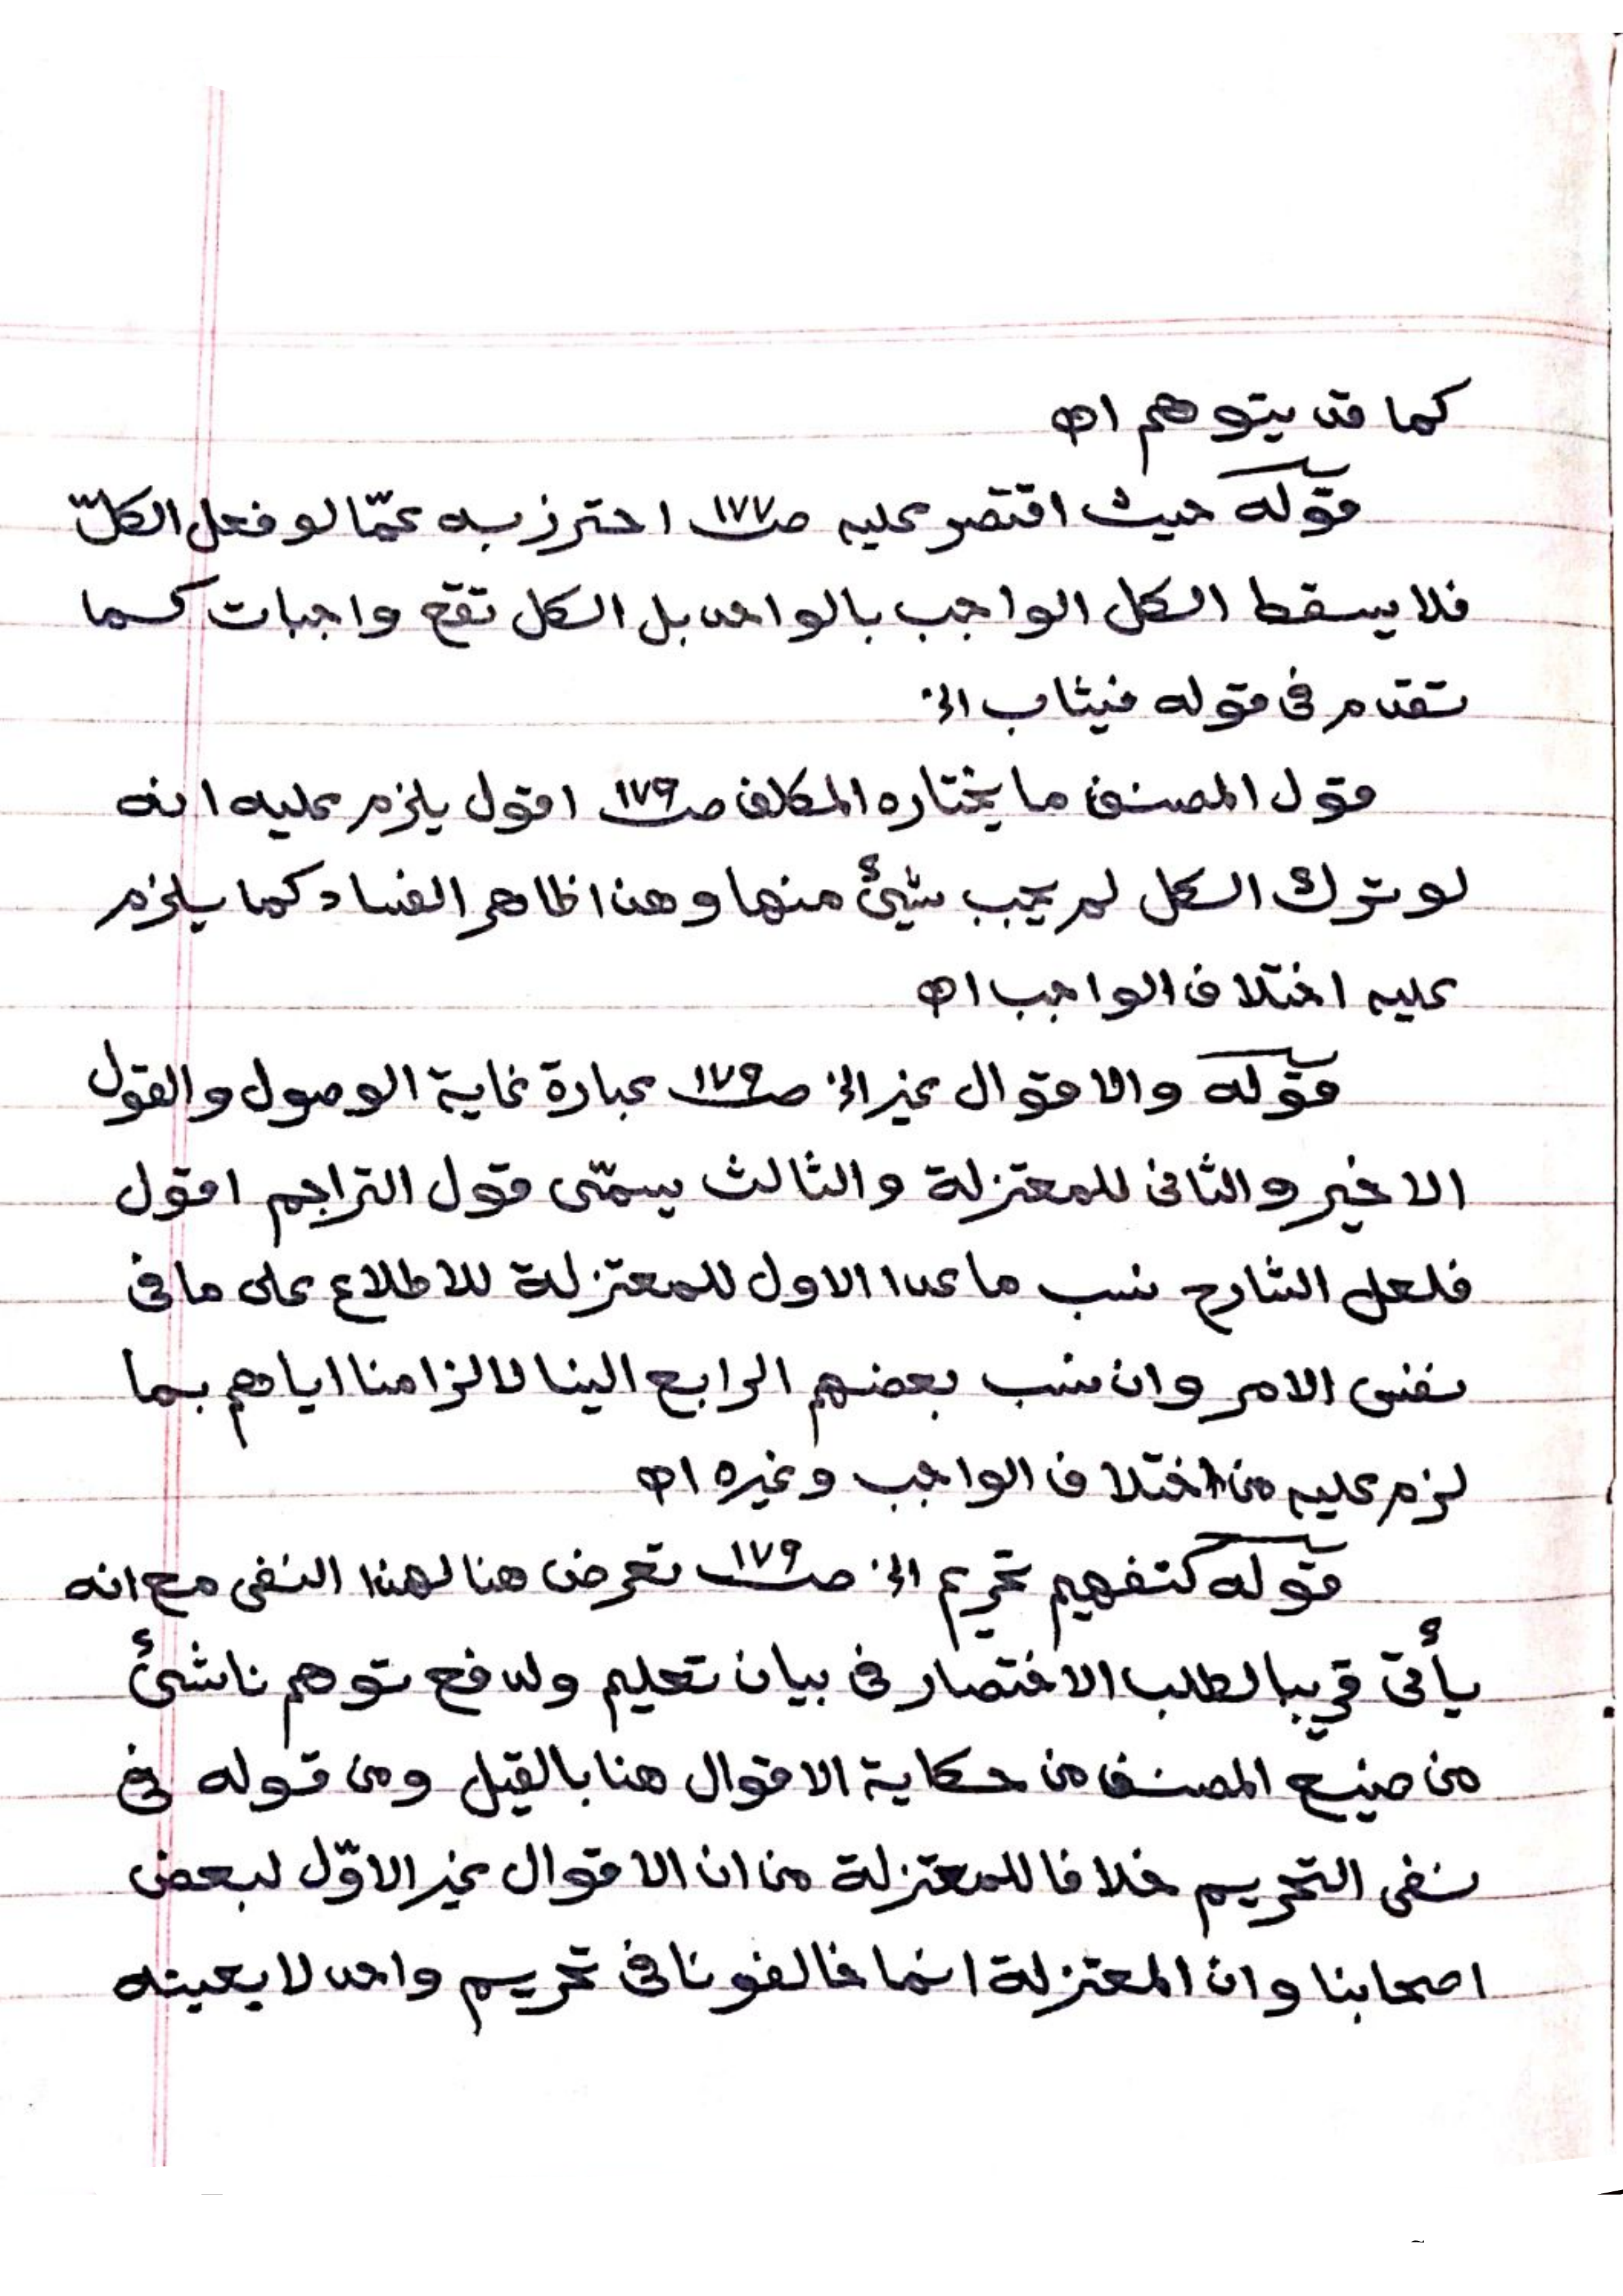 كما قد يتوهم اه
قوله حيث اقتصر عليه صـ١٧٧ احترز به عمّا لو فعل الكلّ
فلا يسقط الكل الواجب بالواحد بل الكل تقع واجبات كما
تقدم فى قوله فيثاب الخ
قول المصنف ما يختاره المكلف صـ١٧٩ اقول يلزم عليه انه
لو ترك الكل لم يجب شيئ منها وهذا ظاهر الفساد كما يلزم
عليه اختلاف الواجب اه
قوله والاقوال غير الخ صـ١٧٩ عبارة غاية الوصول والقول
الاخير والثانى للمعتزلة والثالث يسمّى قول التراجم اقول
فلعل الشارح نسب ما عدا الاول للمعتزلة للاطلاع على ما فى
نفس الامر وان نسب بعضهم الرابع الينا لالزامنا اياهم بما
لزم عليه من اختلاف الواجب وغيره اه
قوله كتفهيم تحريم الخ صـ١٧٩ تعرض هنا لهذا النفى مع انه
يأتى قريبا لطلب الاختصار فى بيان تعليم ولدفع توهم ناشئ
من صنيع المصنف من حكاية الاقوال هنا بالقيل ومن قوله فى
نفى التحريم خلافا للمعتزلة من ان الاقوال غير الاوّل لبعض
اصحابنا وان المعتزلة انما خالفونا فى تحريم واحد لا بعينه